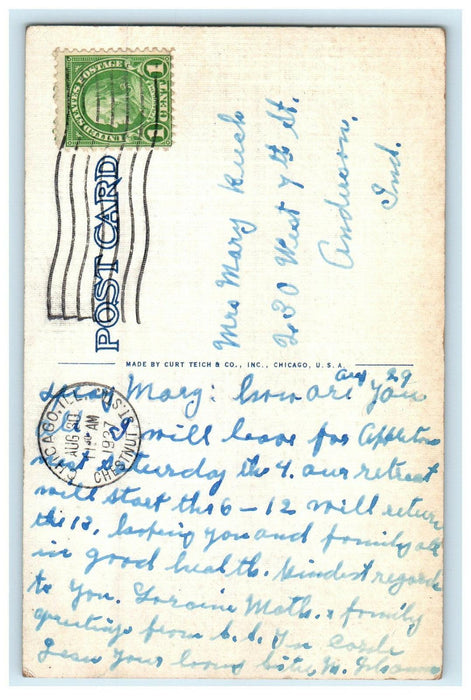 UNITED STATES POSTAGE
1 CENT 1
POST CARD
Mrs Mary Kuch
230 West 7th St.
Anderson,
Ind.
MADE BY CURT TEICH & CO., INC., CHICAGO, U. S. A.
CHICAGO, ILL.
AUG 30
AM
1937
CHESTNUT ST.
Aug 29
Dear Mary: how are you
I will leave for Appleton
next Saturday the 4. our retreat
will start the 6-12 will return
the 13. hoping you and family all
in good health. Kindest regard
to you. Loraine Math. & family
greetings from S. S. In
your loving